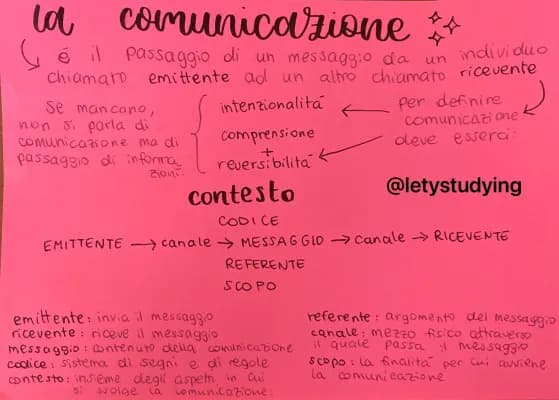 la comunicazione
é il passaggio di un messaggio da un individuo
chiamato emittente ad un altro chiamato ricevente
Se mancano,
non si parla di
comunicazione ma di
passaggio di informa
zioni.
intenzionalità
comprensione
+
reversibilità
per definire
comunicazione
deve esserci:
@letystudying
contesto
CODICE
EMITTENTE → canale → MESSAGGIO → canale → RICEVENTE
REFERENTE
SCOPO
emittente: invia il messaggio
ricevente: riceve il messaggio
messaggio: contenuto della comunicazione
codice: sistema di segni e di regole
contesto: insieme degli aspetti in cui
si svolge la comunicazione.
referente: argomento del messaggio
canale: mezzo fisico attraverso
il quale passa il messaggio
scopo: la finalità per cui avviene
la comunicazione